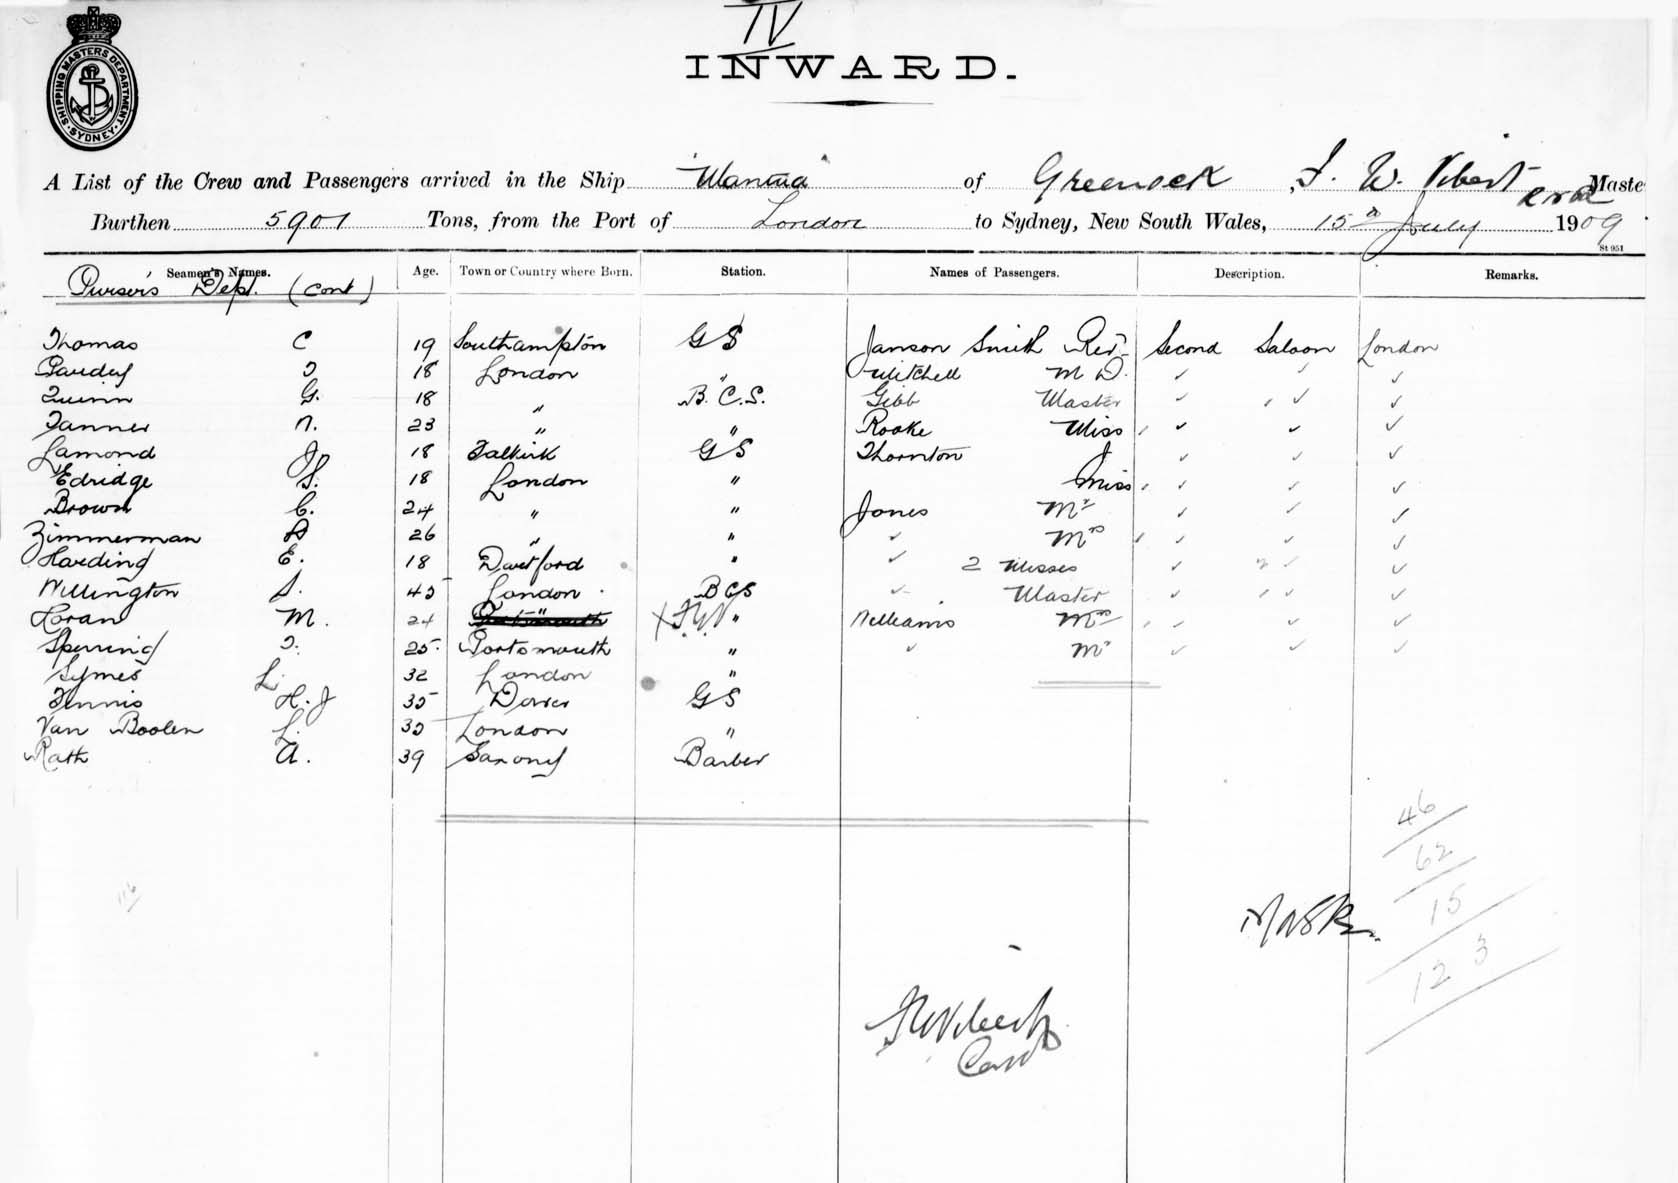 IV
INWARD.
SHIPPING MASTERS DEPARTMENT
SYDNEY
A List of the Crew and Passengers arrived in the Ship "Mantua" of Greenock, F. W. Vibert RNR Maste
Burthen 5901 Tons, from the Port of London to Sydney, New South Wales, 15th July 1909
St 951
Seamen's Names. Age. Town or Country where Born. Station. Names of Passengers. Description. Remarks.
Purser's Dept. (cont)
Thomas C 19 Southampton GS Janson Smith Revd Second Saloon London
18 London Mitchell M D. ✓ ✓ ✓
Quinn G. 18 " B.C.S. Gibb Master ✓ ✓ ✓
Tanner 23 " " Rooke Miss ✓ ✓ ✓
Lamond J 18 Falkirk GS Thornton J ✓ ✓ ✓
Edridge 18 London " Miss ✓ ✓ ✓
Brown C. 24 " " Jones Mr ✓ ✓ ✓
Zimmerman 26 " " ✓ Mrs ✓ ✓ ✓
Harding E. 18 Dartford " ✓ 2 Misses ✓ ✓ ✓
Willington S. 45 London BCS ✓ Master ✓ ✓ ✓
Horan M. 24 " " Williams Mrs ✓ ✓ ✓
Sperring 25 Portsmouth " ✓ Mr ✓ ✓ ✓
Symes L. 32 London "
Tennis H. J 35 Dover GS
Van Boolen L. 35 London "
Rath A. 39 Saxony Barber
46
62
15
123
116
FW Vibert